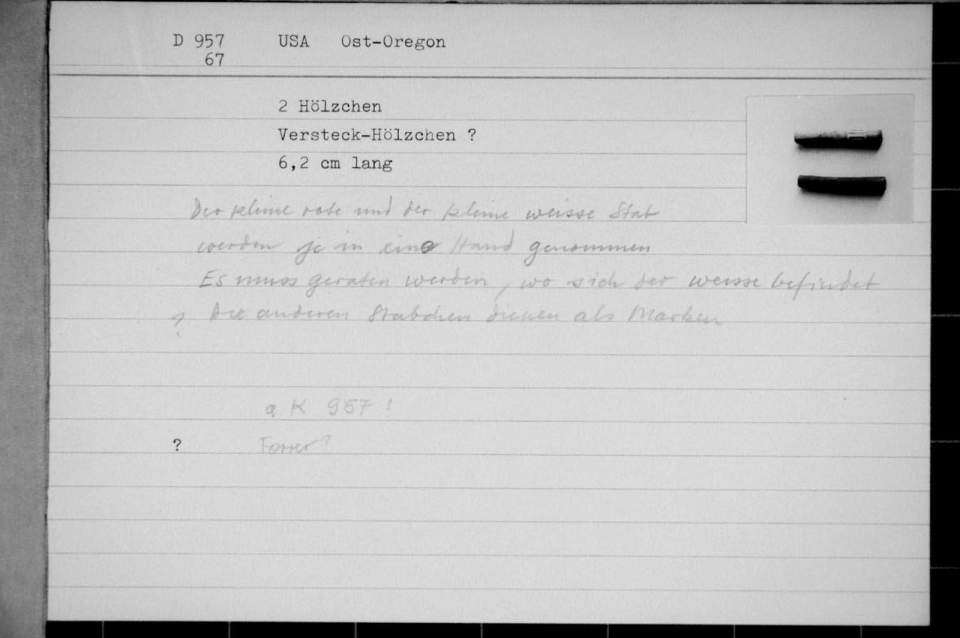 D 957 USA Ost-Oregon
67
2 Hölzchen
Versteck-Hölzchen ?
6,2 cm lang
Der kleine rote und der kleine weisse Stab
werden je in eine Hand genommen
Es muss geraten werden, wo sich der weisse befindet
? Die anderen Stäbchen dienen als Marken
a K 957 !
? Forrer?